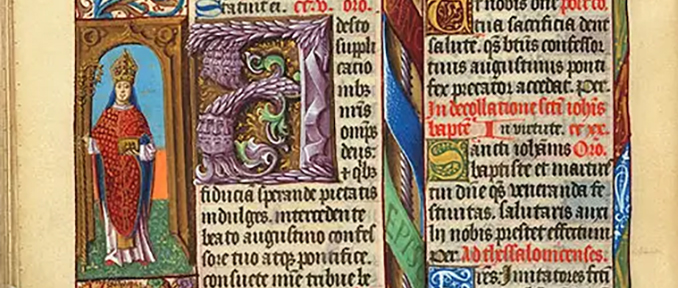 Statuit ei. ev. oro.
A desto
suppli
catio
nibꝫ
nr̄is
omps
deus:
⁊ qbꝫ
fiduciā sperande pietatis
indulges. intercedente
beato augustino confes
sore tuo atqꝫ pontifice.
consuete mie tribue be
Ut nobis dn̄e
tua sacrificia dent
salutē. qs btūs confessor
tuus augustinus ponti
fex precator accedat. Per.
In decollatione scti iohis
baptē In virtute.
Sancti iohānis Oro.
baptiste et martiris
tui dn̄e qs veneranda fe
stiuitas. salutaris auxi
lii nobis prestet effectum
Per. Ad thessalonicenses.
Imitatores
EPIS